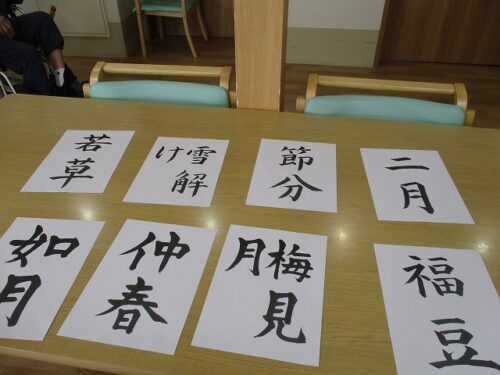 二月
節分
雪解
け
若草
福豆
梅見
月
仲春
如月